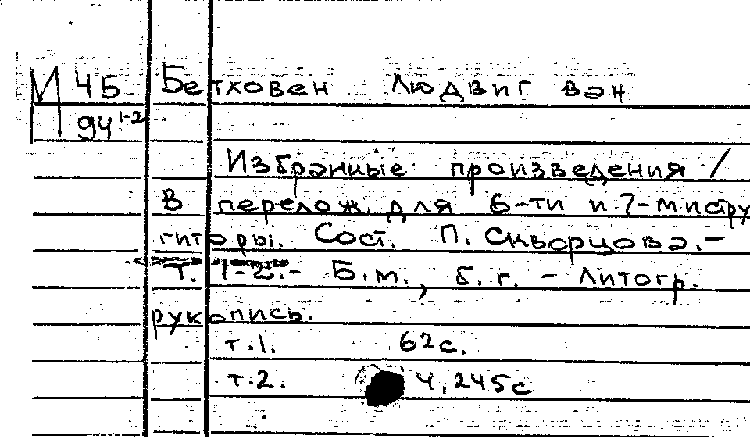 И 45 Бетховен Людвиг ван
94 1-2
Избранные произведения /
В перелож. для 6-ти и 7-ми стру
гитары. Сост. П. Скворцова.-
Т. 1-2.- Б.м., б.г. - Литогр.
рукопись.
т.1. 62с.
т.2. 4,245с